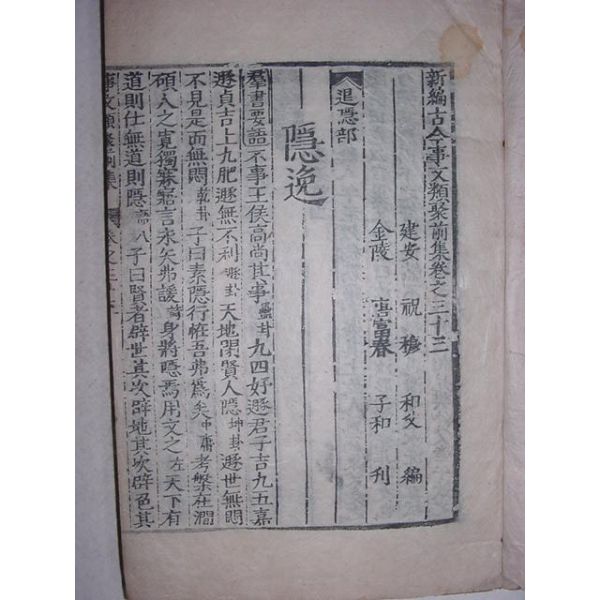 新編古今事文類聚前集卷之三十二
建安 祝 穆 和父 編
金陵 唐富春 子和 刊
退隱部
隱逸
羣書要語不事王侯高尚其事蠱卦九四好遯君子吉九五嘉
遯貞吉上九肥遯無不利遯卦天地閉賢人隱坤卦遯世無悶
不見是而無悶乾卦子曰素隱行恠吾弗爲矣中庸考槃在澗
碩人之寬獨寐寤言永矢弗諼詩身將隱焉用文之左天下有
道則仕無道則隱語八子曰賢者辟世其次辟地其次辟色其
事文類聚前集 卷之三十